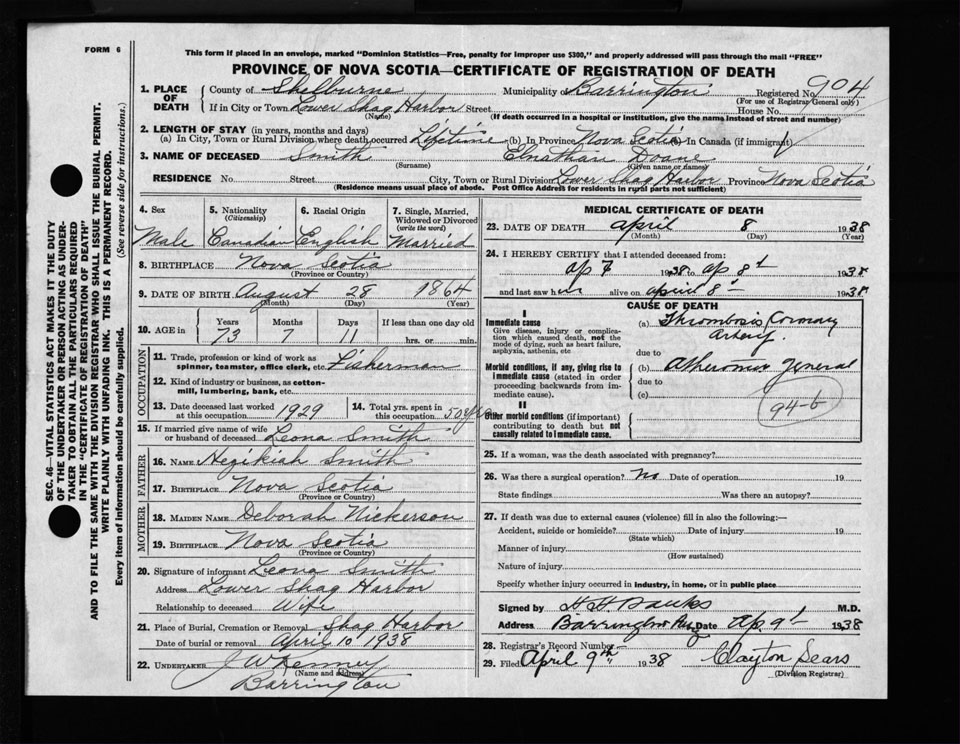 FORM 6
This form if placed in an envelope, marked "Dominion Statistics—Free, penalty for improper use $300," and properly addressed will pass through the mail "FREE"
PROVINCE OF NOVA SCOTIA—CERTIFICATE OF REGISTRATION OF DEATH
SEC. 46—VITAL STATISTICS ACT MAKES IT THE DUTY
OF THE UNDERTAKER OR PERSON ACTING AS UNDER-
TAKER TO OBTAIN ALL THE PARTICULARS REQUIRED
IN THE "CERTIFICATE OF REGISTRATION OF DEATH"
AND TO FILE THE SAME WITH THE DIVISION REGISTRAR WHO SHALL ISSUE THE BURIAL PERMIT.
WRITE PLAINLY WITH UNFADING INK. THIS IS A PERMANENT RECORD.
Every item of information should be carefully supplied. (See reverse side for instructions.)
1. PLACE OF DEATH County of Shelburne Municipality Barrington Registered No. 904
(For use of Registrar General only)
If in City or Town Lower Shag Harbor Street House No.
(Name) (If death occurred in a hospital or institution, give the name instead of street and number)
2. LENGTH OF STAY (in years, months and days)
(a) In City, Town or Rural Division where death occurred Lifetime (b) In Province Nova Scotia (c) In Canada (if immigrant)
3. NAME OF DECEASED Smith Elnathan Doane
(Surname) (Given name or names)
RESIDENCE No. Street City, Town or Rural Division Lower Shag Harbor Province Nova Scotia
(Residence means usual place of abode. Post Office Address for residents in rural parts not sufficient)
4. Sex Male
5. Nationality (Citizenship) Canadian
6. Racial Origin English
7. Single, Married, Widowed or Divorced (write the word) Married
8. BIRTHPLACE Nova Scotia
(Province or Country)
9. DATE OF BIRTH August 28 1864
(Month) (Day) (Year)
10. AGE in Years 73 Months 7 Days 11 If less than one day old hrs. or min.
OCCUPATION
11. Trade, profession or kind of work as spinner, teamster, office clerk, etc. Fisherman
12. Kind of industry or business, as cotton-mill, lumbering, bank, etc.
13. Date deceased last worked at this occupation 1929
14. Total yrs. spent in this occupation 50 yrs
15. If married give name of wife or husband of deceased Leona Smith
FATHER
16. NAME Hezikiah Smith
17. BIRTHPLACE Nova Scotia
(Province or Country)
MOTHER
18. MAIDEN NAME Deborah Nickerson
19. BIRTHPLACE Nova Scotia
(Province or Country)
20. Signature of informant Leona Smith
Address Lower Shag Harbor
Relationship to deceased Wife
21. Place of Burial, Cremation or Removal Shag Harbor
Date of burial or removal April 10 1938
22. UNDERTAKER J W Kenney
(Name and address)
Barrington
MEDICAL CERTIFICATE OF DEATH
23. DATE OF DEATH April 8 1938
(Month) (Day) (Year)
24. I HEREBY CERTIFY that I attended deceased from:
Ap 7 1938 to Ap 8 1938
and last saw him alive on April 8 1938
CAUSE OF DEATH
I
Immediate cause
Give disease, injury or complication which caused death, not the mode of dying, such as heart failure, asphyxia, asthenia, etc
(a) Thrombosis Coronary Artery
due to
Morbid conditions, if any, giving rise to immediate cause (stated in order proceeding backwards from immediate cause).
(b) Atheroma General
due to
(c)
94-b
II
Other morbid conditions (if important) contributing to death but not causally related to immediate cause.
25. If a woman, was the death associated with pregnancy?
26. Was there a surgical operation? No Date of operation 19
State findings Was there an autopsy?
27. If death was due to external causes (violence) fill in also the following:—
Accident, suicide or homicide? Date of injury 19
(State which)
Manner of injury
(How sustained)
Nature of injury
Specify whether injury occurred in industry, in home, or in public place
Signed by H H Banks M.D.
Address Barrington Date Ap. 9 1938
28. Registrar's Record Number
29. Filed April 9th 1938 Clayton Sears
(Division Registrar)